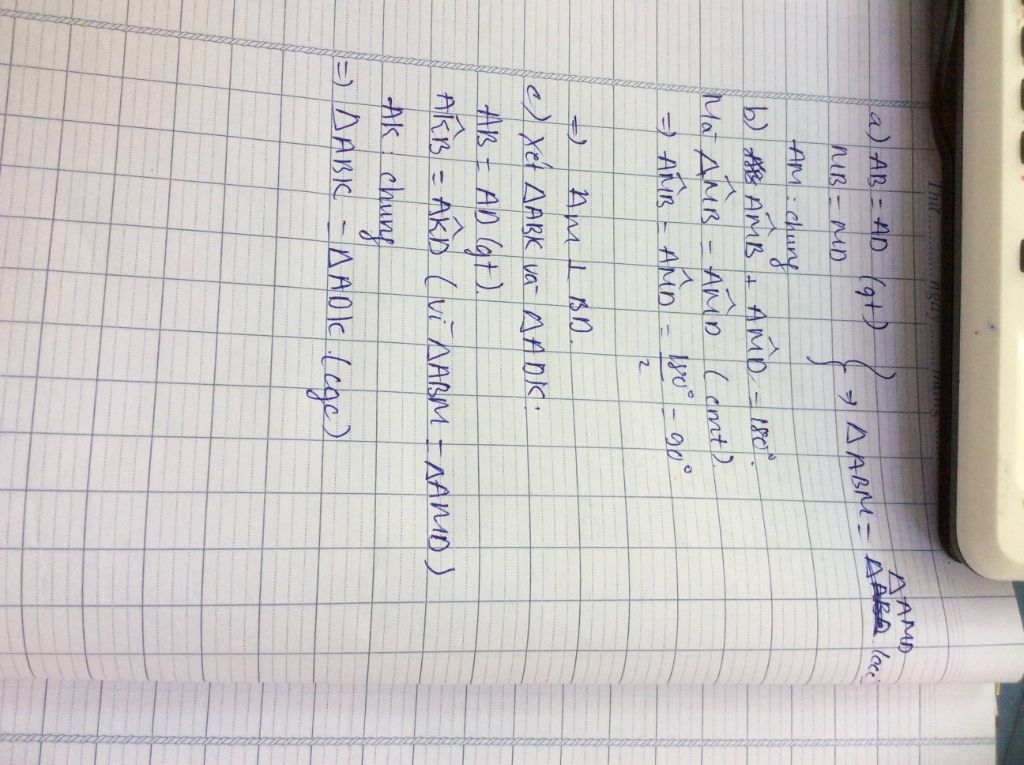 a) AB = AD (gt)
MB = MD } => ΔABM = ΔAMD
AM : chung
b) AM̂B + AM̂D = 180°.
Mà AM̂B = AM̂D (cmt)
=> AM̂B = AM̂D = 180°/2 = 90°
=> AM ⊥ BD.
c) Xét ΔABK và ΔADK:
AB = AD (gt).
AK̂B = AK̂D (vì ΔABM = ΔAMD)
AK : chung
=> ΔABK = ΔADK (cgc)